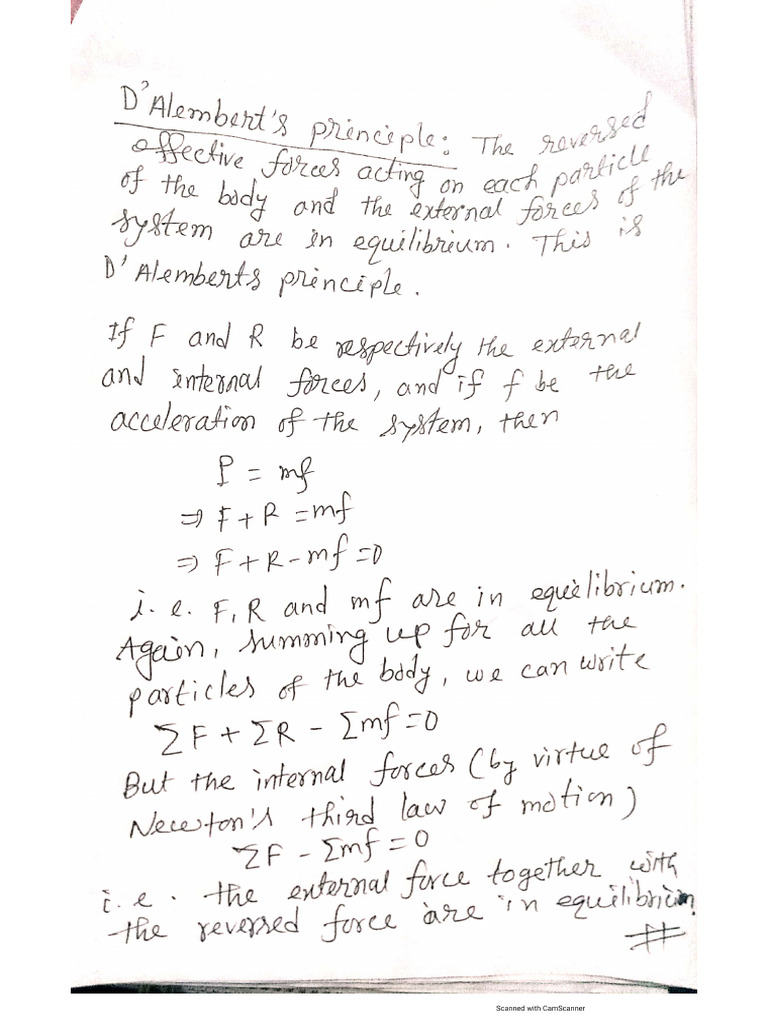 D'Alembert's principle: The reversed
effective forces acting on each particle
of the body and the external forces of the
system are in equilibrium. This is
D'Alemberts principle.
If F and R be respectively the external
and internal forces, and if f be the
acceleration of the system, then
P = mf
⇒ F + R = mf
⇒ F + R - mf = 0
i.e. F, R and mf are in equilibrium.
Again, summing up for all the
particles of the body, we can write
ΣF + ΣR - Σmf = 0
But the internal forces (by virtue of
Newton's third law of motion)
ΣF - Σmf = 0
i.e. the external force together with
the reversed force are in equilibrium
Scanned with CamScanner